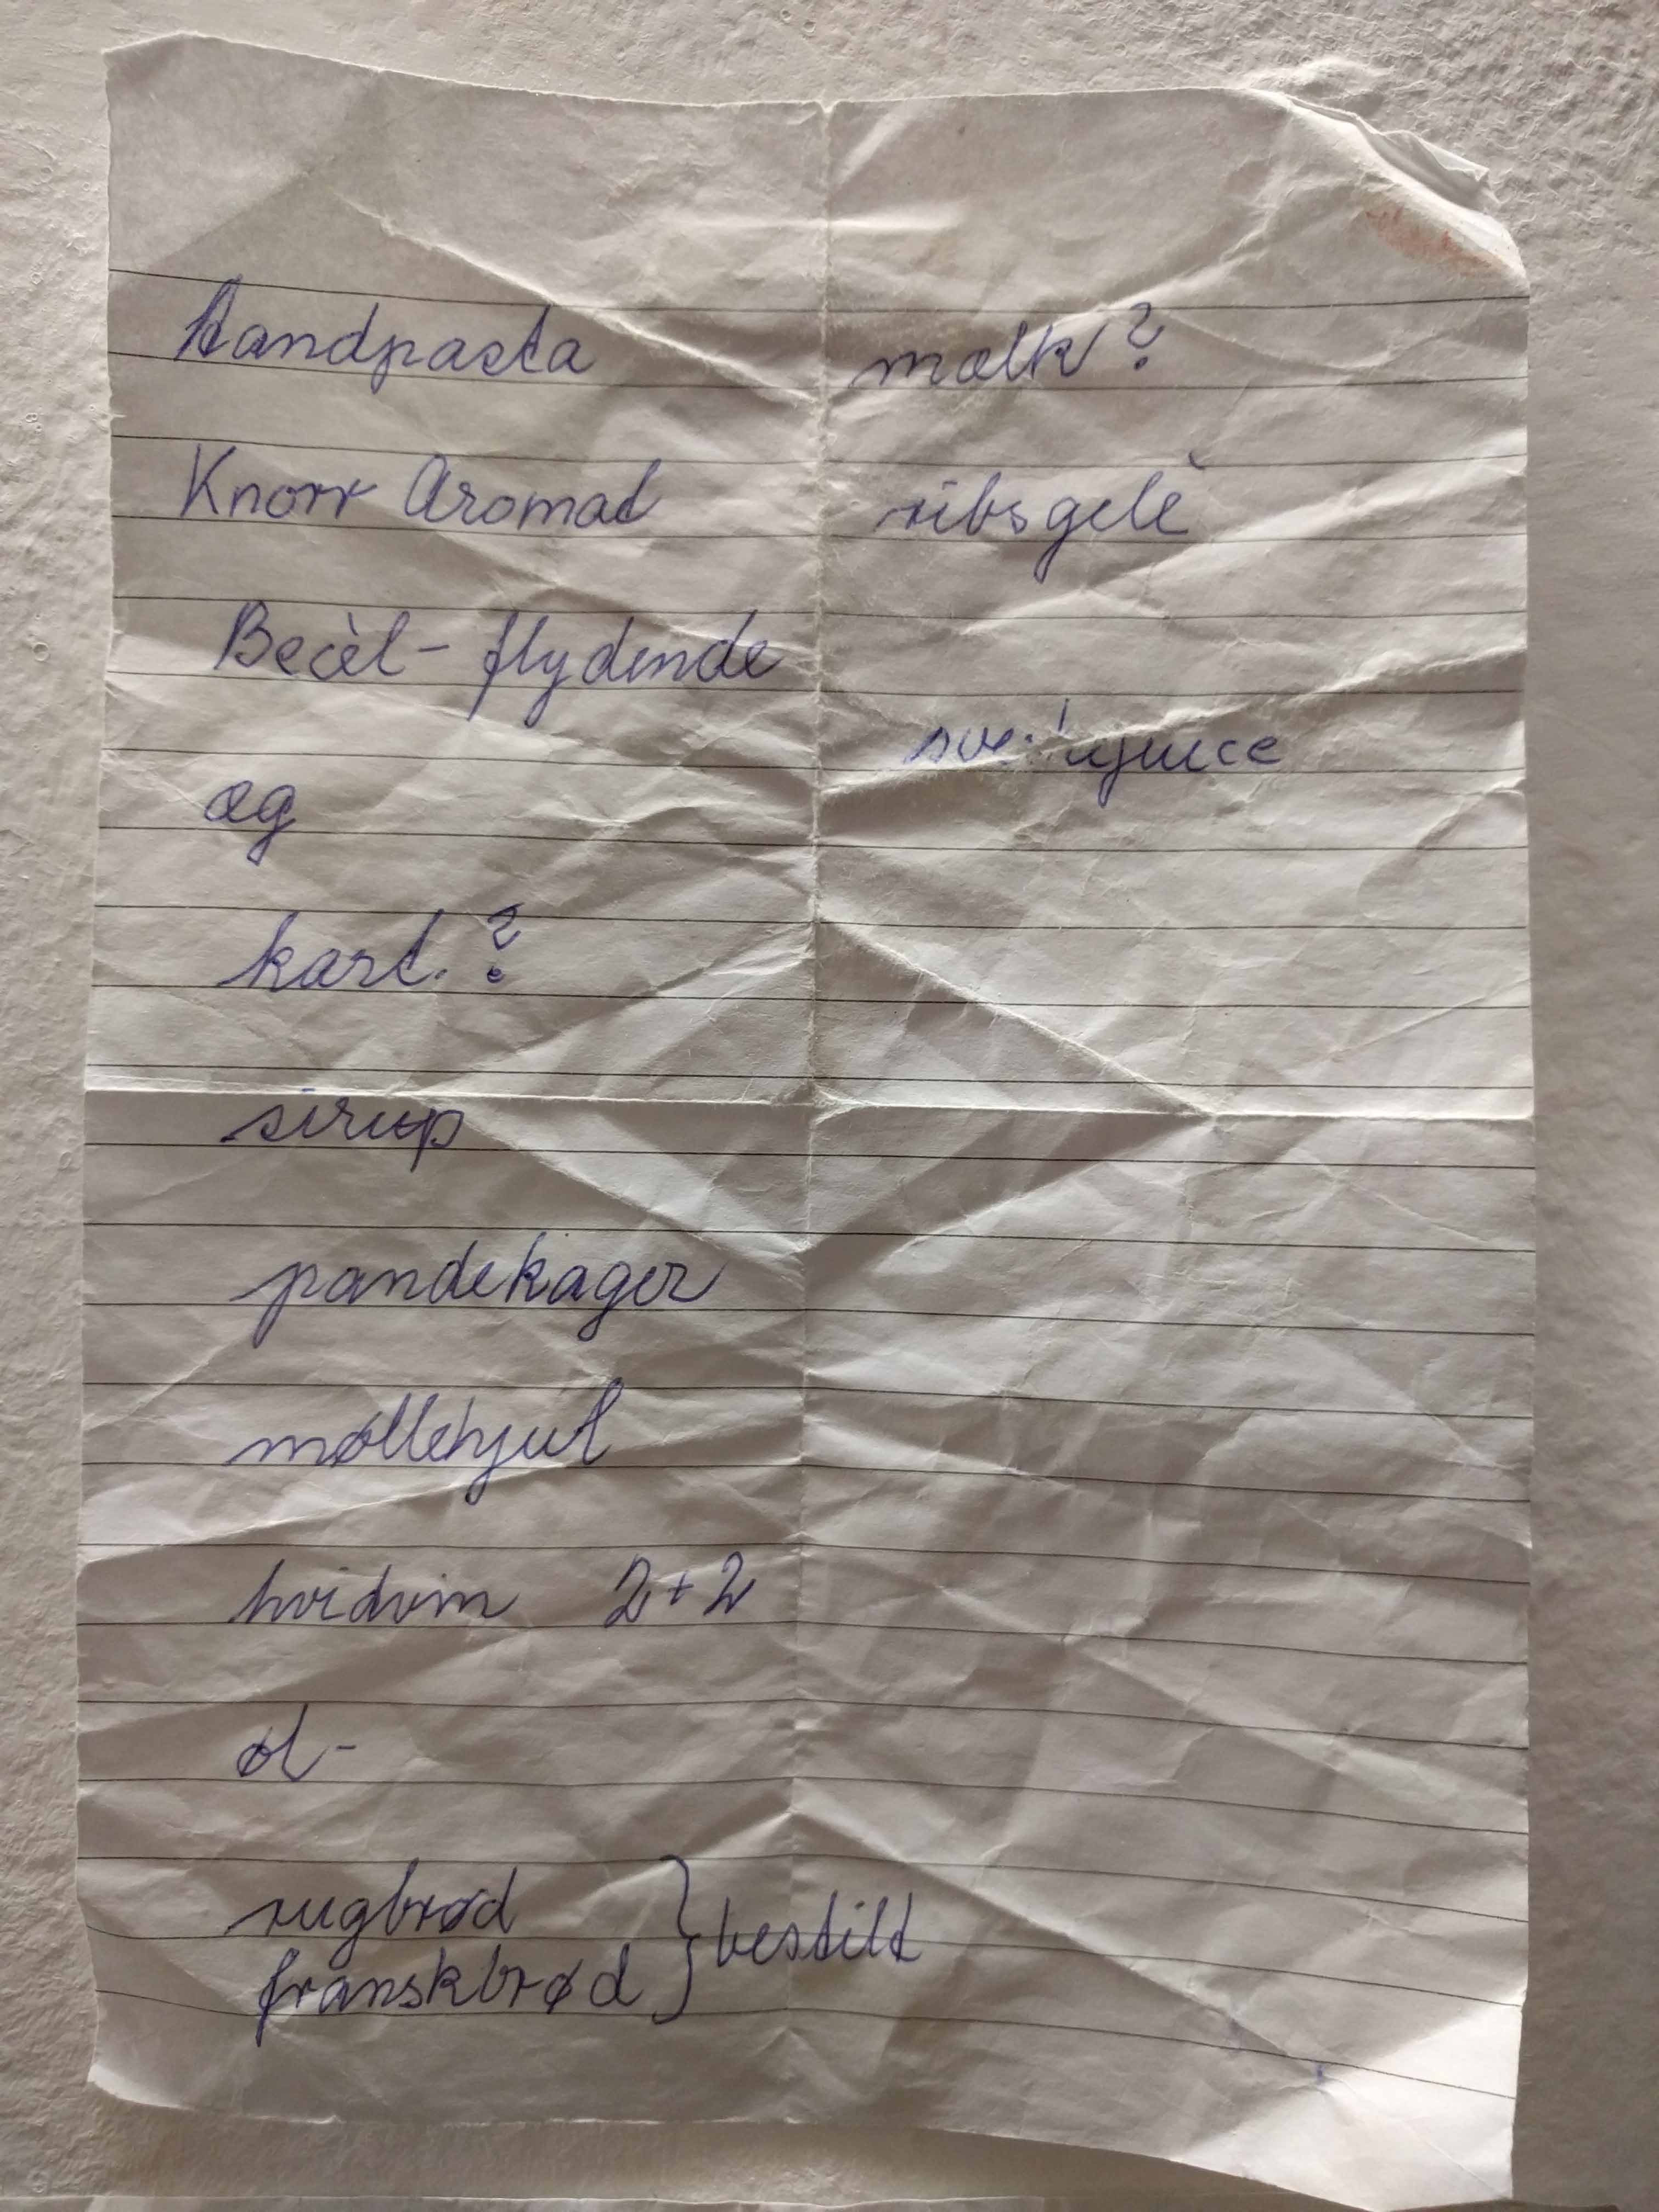 tandpasta
Knorr Aromat
Becèl - flydende
æg
kart. ?
sirup
pandekager
møllehjul
hvidvin 2+2
øl -
rugbrød
franskbrød } bestilt
mælk ?
ribsgelè